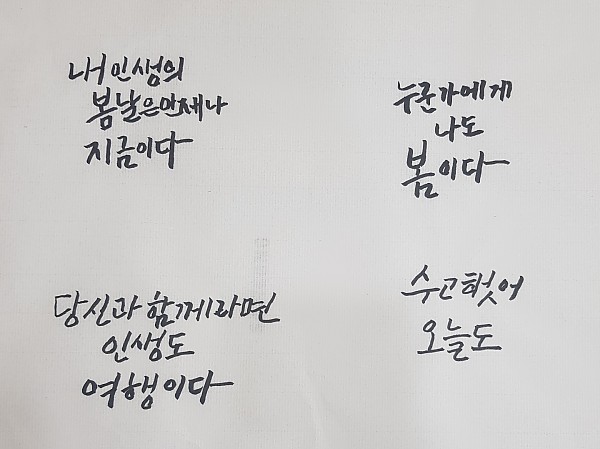 내 인생의
봄날은 언제나
지금이다
누군가에게
나도
봄이다
당신과 함께라면
인생도
여행이다
수고했어
오늘도